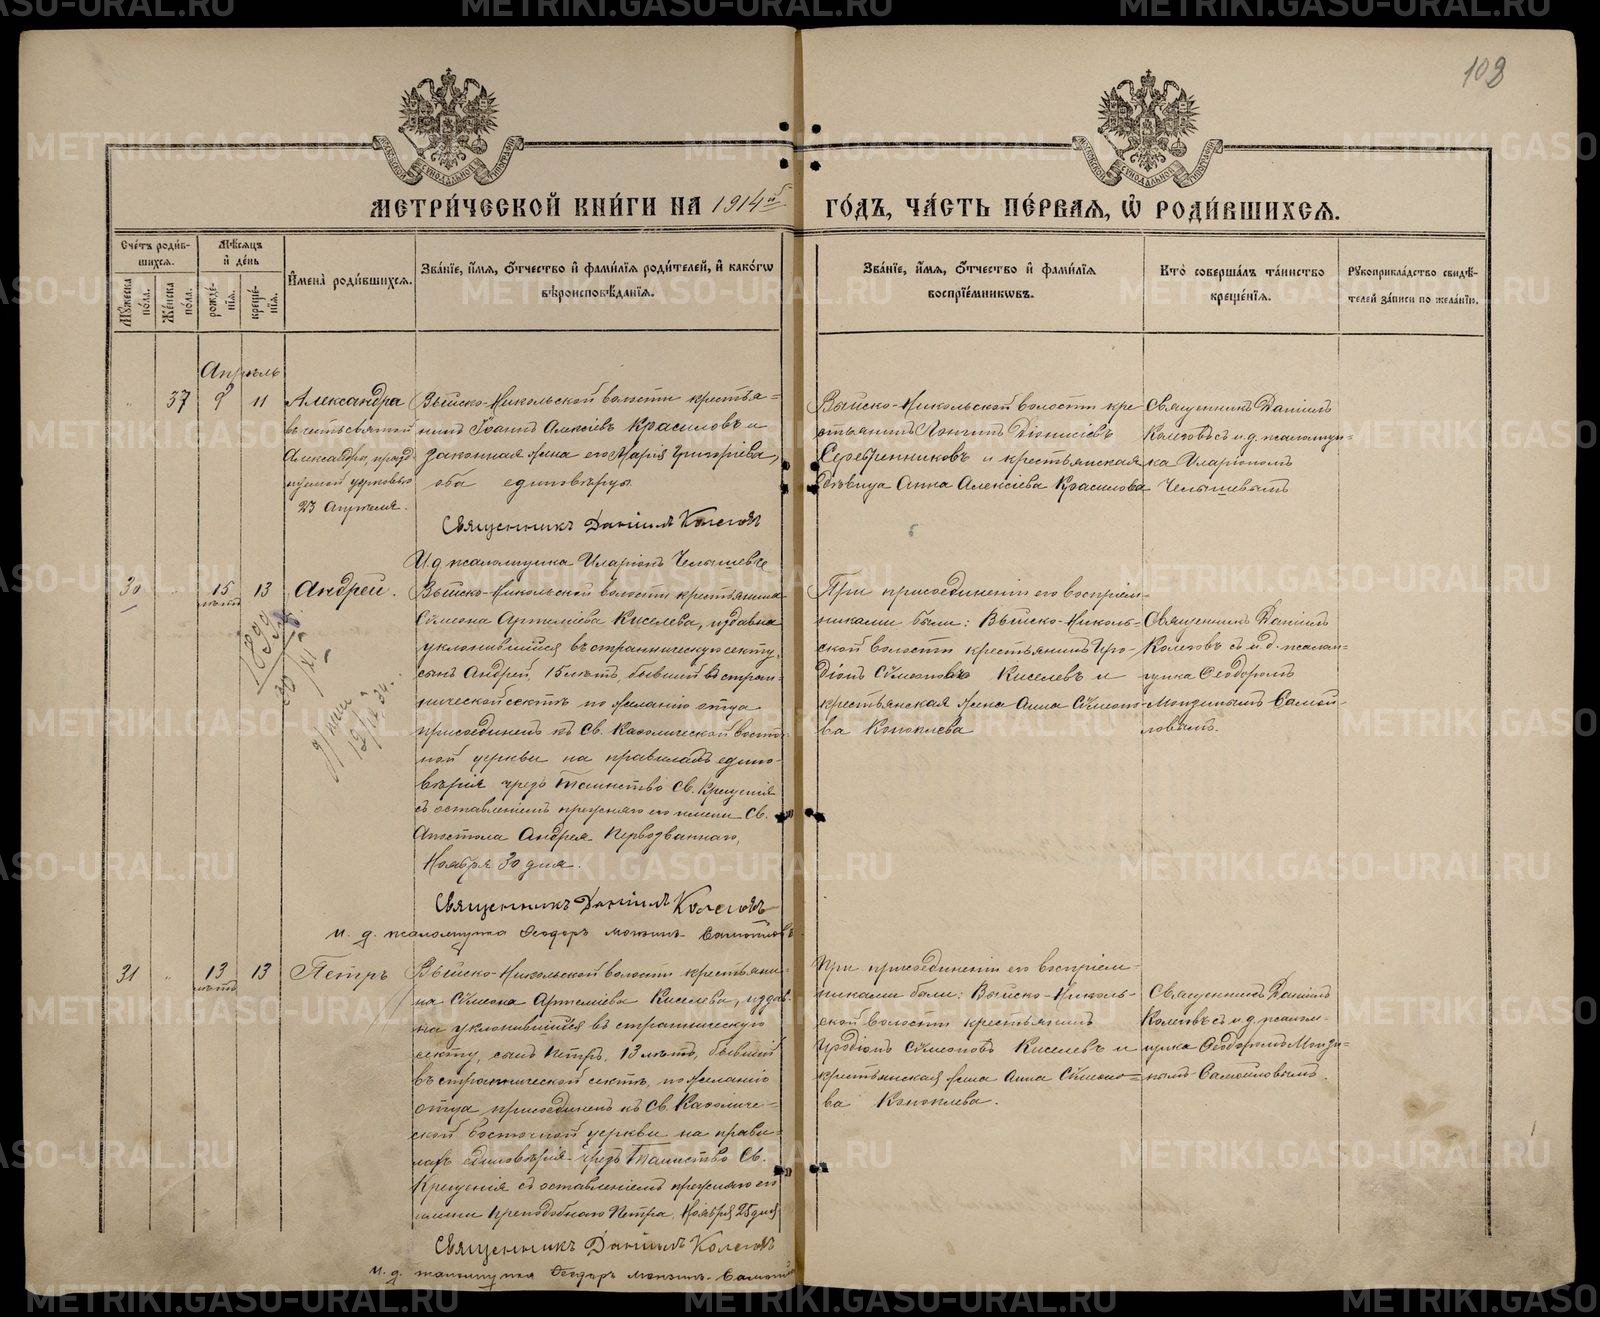 108
МЕТРИ́ЧЕСКОЙ КНИ́ГИ НА 1914й
ГО́ДЪ, ЧА́СТЬ ПЕ́РВАЯ, Ѿ РОДИ́ВШИХСЯ.
Сче́тъ роди́в-
шихся.
Му́жеска
по́ла.
Же́нска
по́ла.
Мѣ́сяцъ
и҆ де́нь
рожде́-
нїя.
креще́-
нїя.
И҆мена̀ роди́вшихся.
Зва́нїе, и҆́мя, ѻ҆́тчество и҆ фами́лїя роди́телей, и҆ како́гѡ
вѣроисповѣ́данїя.
Зва́нїе, и҆́мя, ѻ҆́тчество и҆ фами́лїя
воспрїе́мникѡвъ.
Кто̀ соверша́лъ та́инство
креще́нїя.
Рꙋкоприкла́дство свидѣ́-
телей за́писи по жела́нїю.
Апрѣль
37
9
11
Александра
въ честь святой
Александры, празд-
нуемой церковью
23 Апрѣля.
Выйско-Никольской волости крестья=
нинъ Іоаннъ Алексіевъ Красиловъ и
законная жена его Марія Григоріева,
оба единовѣрцы.
Священникъ Даніилъ Колеговъ
И.д псаломщика Иларіонъ Челышевъ
Выйско-Никольской волости кре-
стьянинъ Лонгинъ Діонисіевъ
Серебренниковъ и крестьянская
дѣвица Анна Алексіева Красилова
Священникъ Даніилъ
Колеговъ съ и.д. псаломщи-
ка Иларіономъ
Челышевымъ
30
15
лѣтъ
13
Андрей.
1899
Выйско-Никольской волости крестьянина
Сѵмеона Артеміева Киселева, издавна
уклонившійся въ странническую секту,
сынъ Андрей, 15 лѣтъ, бывшій въ стран-
нической сектѣ по желанію отца
присоединенъ къ Св. Каѳолической восточ-
ной церкви на правилахъ едино-
вѣрія чрезъ Таинство Св. Крещенія
съ оставленіемъ прежняго его имени Св.
Апостола Андрея Первозваннаго,
Ноября 30 дня.
Священникъ Даніилъ Колеговъ
и. д. псаломщика Ѳеодоръ Монзинъ-Самойловъ
При присоединеніи его воспріем-
никами были: Выйско-Николь-
ской волости крестьянинъ Иро-
діонъ Сѵмеоновъ Киселевъ и
крестьянская жена Анна Сѵмеоно-
ва Коноплева
Священникъ Даніилъ
Колеговъ съ и.д. псалом-
щика Ѳеодоромъ
Монзинымъ Самой-
ловымъ.
31
13
лѣтъ
13
Петръ
Выйско-Никольской волости крестьяни-
на Сѵмеона Артеміева Киселева, издав-
на уклонившійся въ странническую
секту, сынъ Петръ, 13 лѣтъ, бывшій
въ страннической сектѣ, по желанію
отца присоединенъ къ Св. Каѳоличе-
ской Восточной церкви на прави-
лахъ единовѣрія чрезъ Таинство Св.
Крещенія съ оставленіемъ прежняго его
имени Преподобнаго Петра, Ноября 25 дня
Священникъ Даніилъ Колеговъ
и. д. псаломщика Ѳеодоръ Монзинъ-Самойловъ
При присоединеніи его воспріем-
никами были: Выйско-Николь-
ской волости крестьянинъ
Иродіонъ Сѵмеоновъ Киселевъ и
крестьянская жена Анна Сѵмеоно=
ва Коноплева.
Священникъ Даніилъ
Колеговъ съ и.д. псалом-
щика Ѳеодоромъ Монзи-
нымъ-Самойловымъ.
METRIKI.GASO-URAL.RU